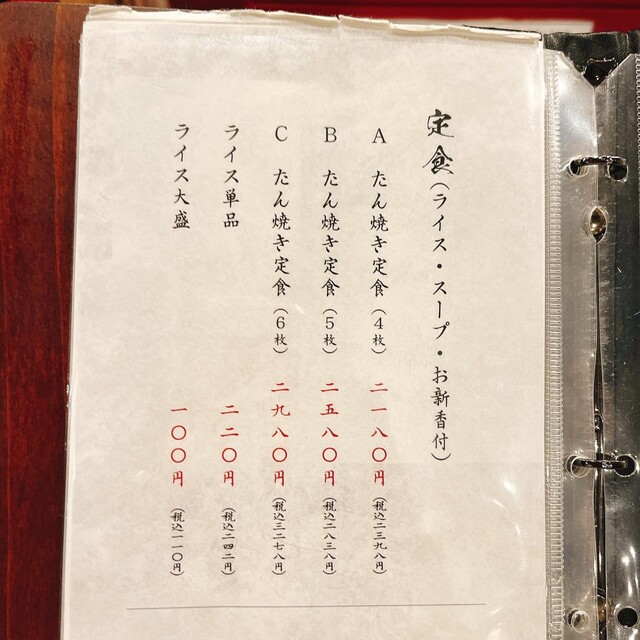 定食（ライス・スープ・お新香付）
A たん焼き定食（4枚） 二一八〇円（税込二三九八円）
B たん焼き定食（5枚） 二五八〇円（税込二八三八円）
C たん焼き定食（6枚） 二九八〇円（税込三二七八円）
ライス単品 二二〇円（税込二四二円）
ライス大盛 一〇〇円（税込一一〇円）